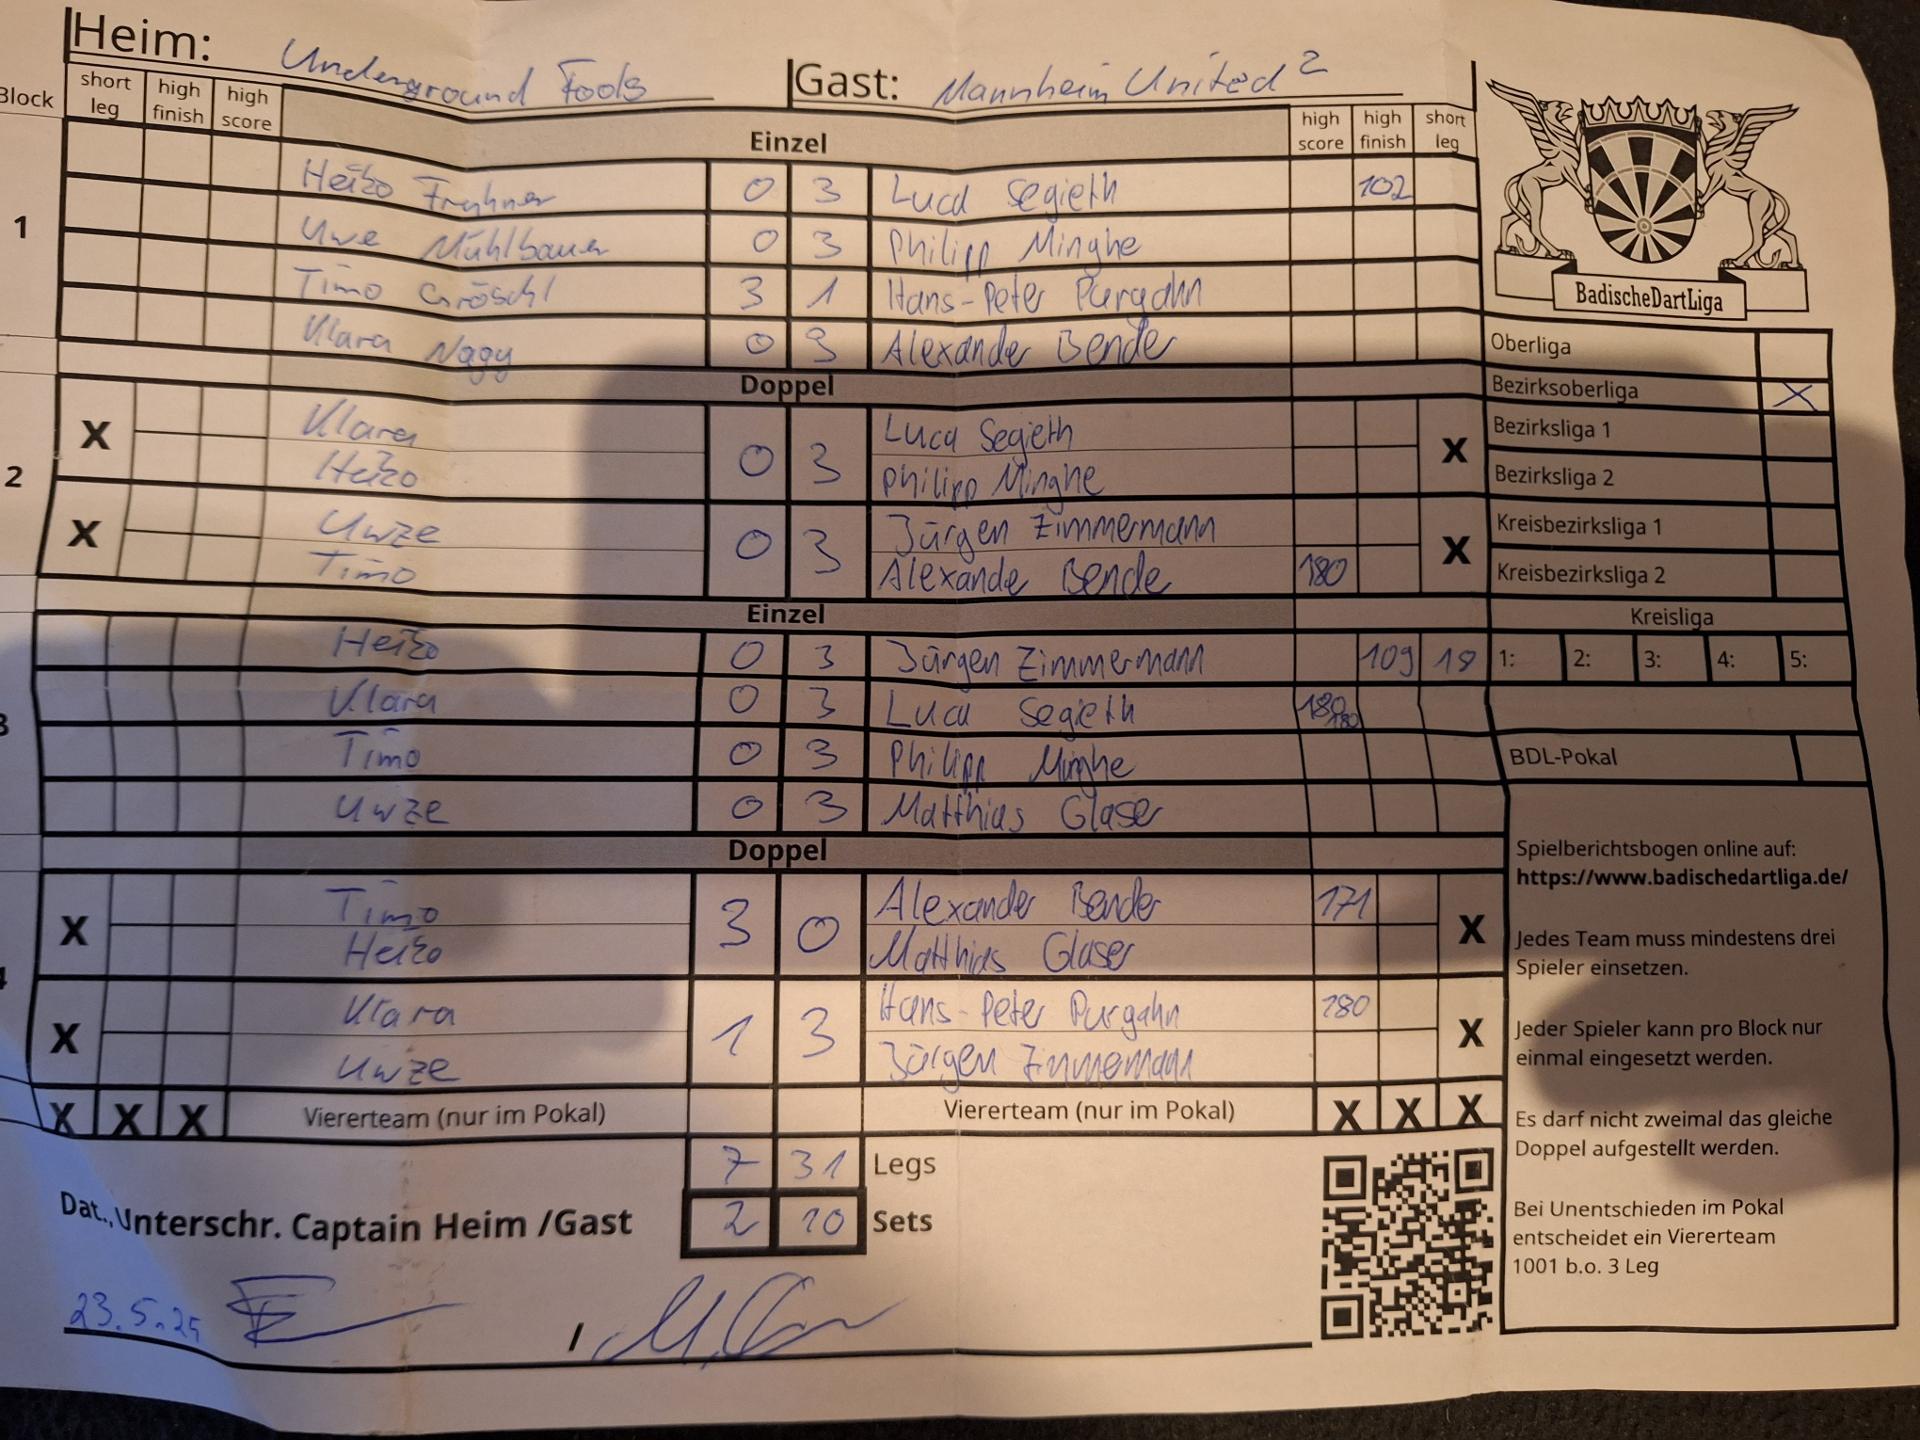 Heim: Underground Fools Gast: Mannheim United 2
Block short leg high finish high score Einzel high score high finish short leg
1
Heiko 0 3 Luca Segieth 102
Uwe Mühlbauer 0 3 Philipp Minghe
Timo Gröschl 3 1 Hans-Peter Purgahn
Klara Nagy 0 3 Alexander Bender
Doppel
2
X Klara 0 3 Luca Segieth X
Heiko Philipp Minghe
X Uwze 0 3 Jürgen Zimmermann X
Timo Alexande Bende 180
Einzel
3
Heiko 0 3 Jürgen Zimmermann 109 18
Klara 0 3 Luca Segieth 180 180
Timo 0 3 Philipp Minghe
Uwze 0 3 Matthias Glaser
Doppel
4
X Timo 3 0 Alexander Bender 171 X
Heiko Matthias Glaser
X Klara 1 3 Hans-Peter Purgahn 180 X
Uwze Jürgen Zimmemann
X X X Viererteam (nur im Pokal) Viererteam (nur im Pokal) X X X
7 31 Legs
Dat., Unterschr. Captain Heim /Gast 2 10 Sets
23.5.25 /
BadischeDartLiga
Oberliga
Bezirksoberliga X
Bezirksliga 1
Bezirksliga 2
Kreisbezirksliga 1
Kreisbezirksliga 2
Kreisliga
1: 2: 3: 4: 5:
BDL-Pokal
Spielberichtsbogen online auf:
https://www.badischedartliga.de/
Jedes Team muss mindestens drei
Spieler einsetzen.
Jeder Spieler kann pro Block nur
einmal eingesetzt werden.
Es darf nicht zweimal das gleiche
Doppel aufgestellt werden.
Bei Unentschieden im Pokal
entscheidet ein Viererteam
1001 b.o. 3 Leg